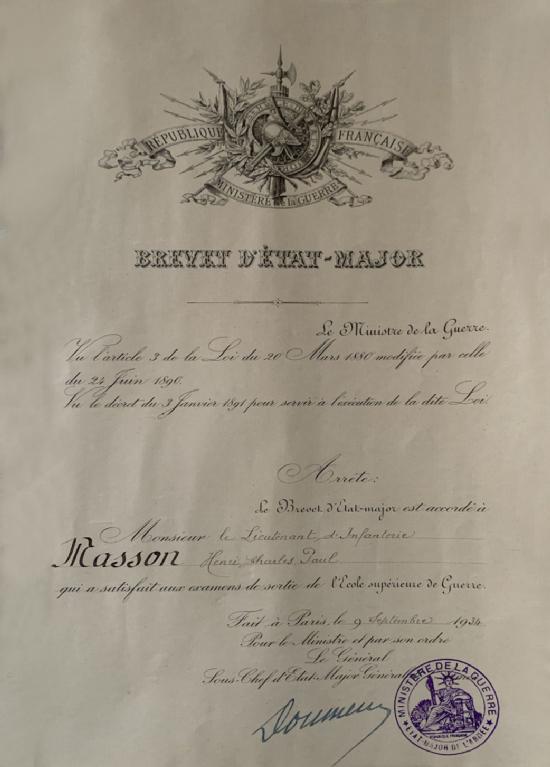 RÉPUBLIQUE FRANÇAISE
MINISTÈRE de la GUERRE
BREVET D'ÉTAT-MAJOR
Le Ministre de la Guerre.
Vu l'article 3 de la Loi du 20 Mars 1880 modifiée par celle
du 24 Juin 1890.
Vu le décret du 3 Janvier 1891 pour servir à l'exécution de la dite Loi.
Arrête:
Le Brevet d'Etat-major est accordé à
Monsieur le Lieutenant d'Infanterie
Masson Henri, Charles, Paul
qui a satisfait aux examens de sortie de l'Ecole supérieure de Guerre.
Fait à Paris, le 9 Septembre 1934
Pour le Ministre et par son ordre
Le Général
Sous-Chef d'Etat-Major Général
MINISTÈRE DE LA GUERRE
ÉTAT-MAJOR DE L'ARMÉE
RÉPUBLIQUE FRANÇAISE